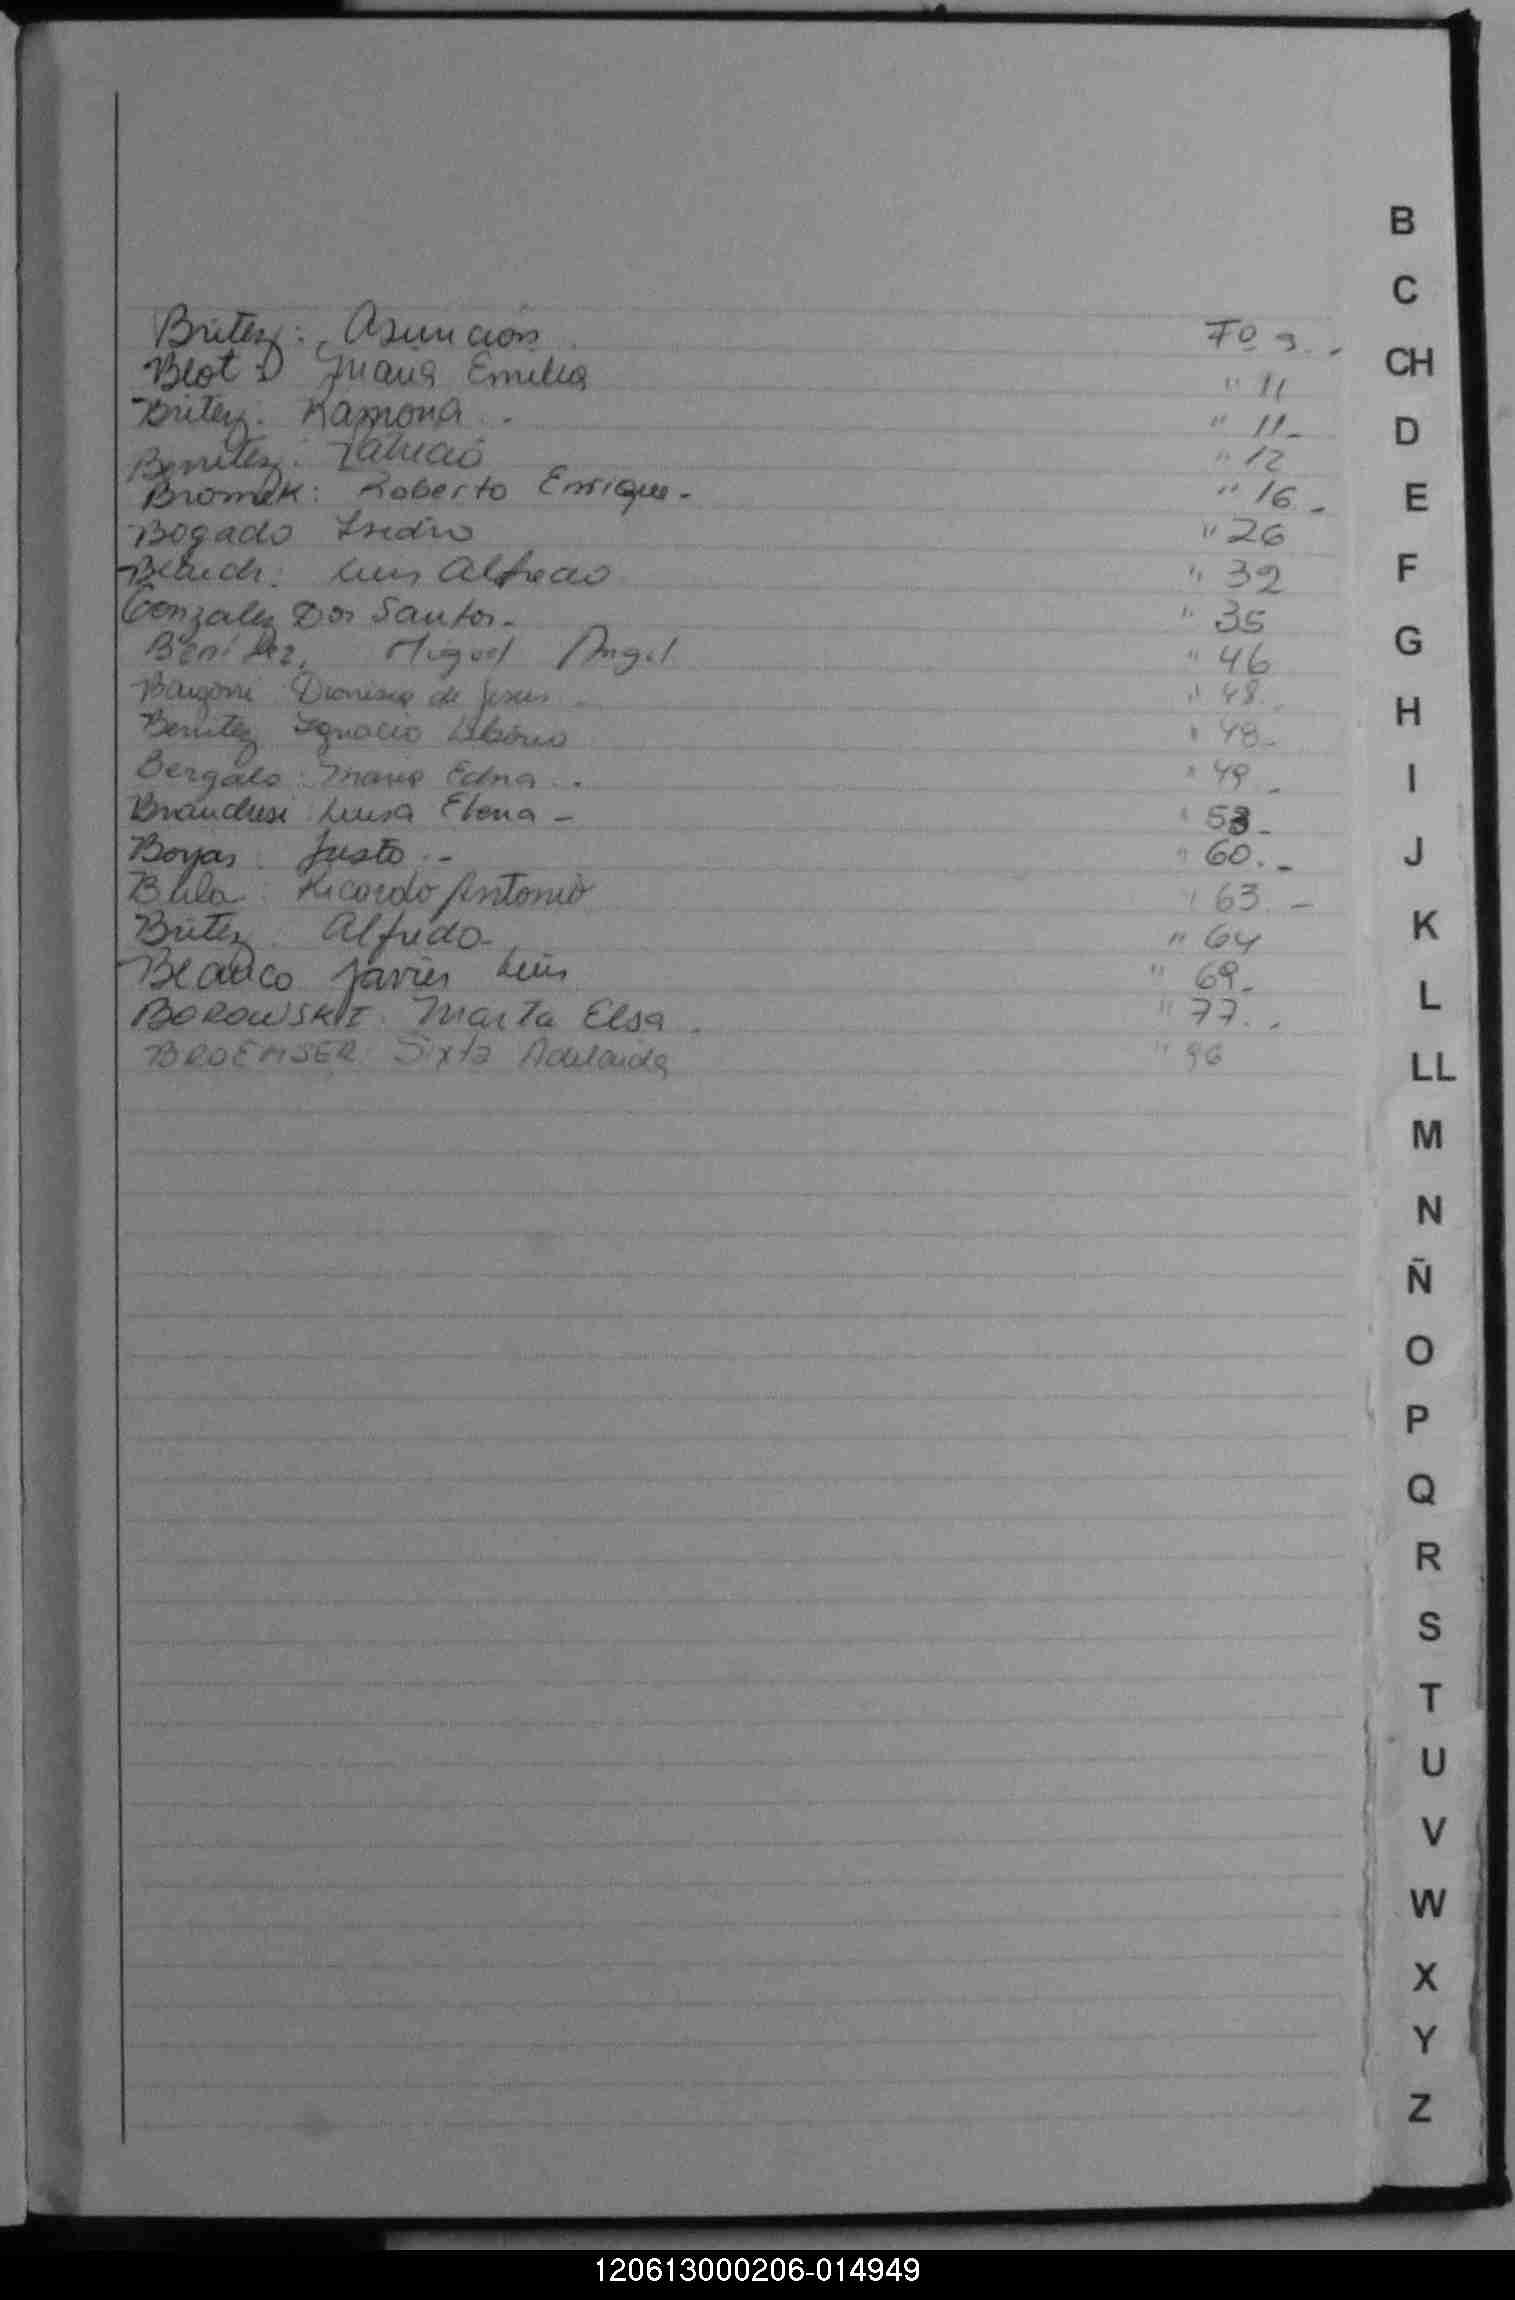 Britez: Asunción Fº 9.-
Blot D Maria Emilia " 11
Britez: Ramona.. " 11-
Benitez: Patricio " 12
Bromek: Roberto Enrique- " 16-
Bogado Isidro " 26
Blanch: Luis Alfredo " 32
Gonzalez Dos Santos- " 35
Benitez, Miguel Angel " 46
Dionisia de Jesus " 48.
Benitez Ignacio Liborio " 48-
Bergalo: Maria Edna.. " 49-
Luisa Elena- " 53-
Boyas: Justo.- " 60.-
Ricardo Antonio " 63.-
Britez: Alfredo- " 64
Blanco Javier Luis " 69-
BOROWSKI: Marta Elsa. " 77..
BROEMSER: Sixta Adelaida " 96
B
C
CH
D
E
F
G
H
I
J
K
L
LL
M
N
Ñ
O
P
Q
R
S
T
U
V
W
X
Y
Z
120613000206-014949